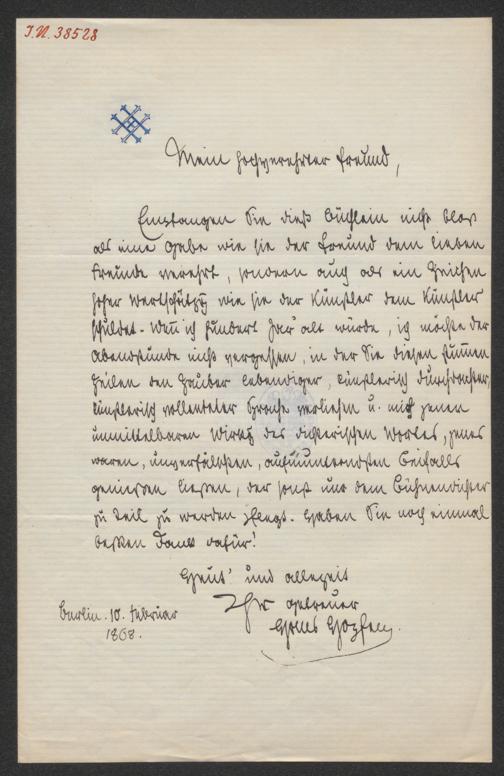 I.N. 38528
Mein hochverehrter Freund,
Empfangen Sie dieß Büchlein nicht bloß
als eine Gabe wie sie der Freund dem lieben
Freunde verehrt, sondern auch als ein Zeichen
hoher Wertschätzg wie sie der Künstler dem Künstler
schuldet. Wen̄ ich hundert Jar alt würde, ich möchte der
Abendstunde nicht vergessen, in der Sie diesen stum̄en
Zeilen den Zauber lebendiger, künstlerisch durchdachter,
künstlerisch vollendeter Sprache verliehen u. mich jenen
unmittelbaren Wirkg des dichterischen Wortes, jenes
waren, unverfälschten, aufmunterndsten Beifalls
geniessen liessen, der sonst nur dem Bühnendichter
zu Teil zu werden pflegt. Haben Sie noch einmal
besten Dank dafür!
Heut' und allezeit
Ihr getreuer
Hans Hopfen.
Berlin. 10. Februar
1868.